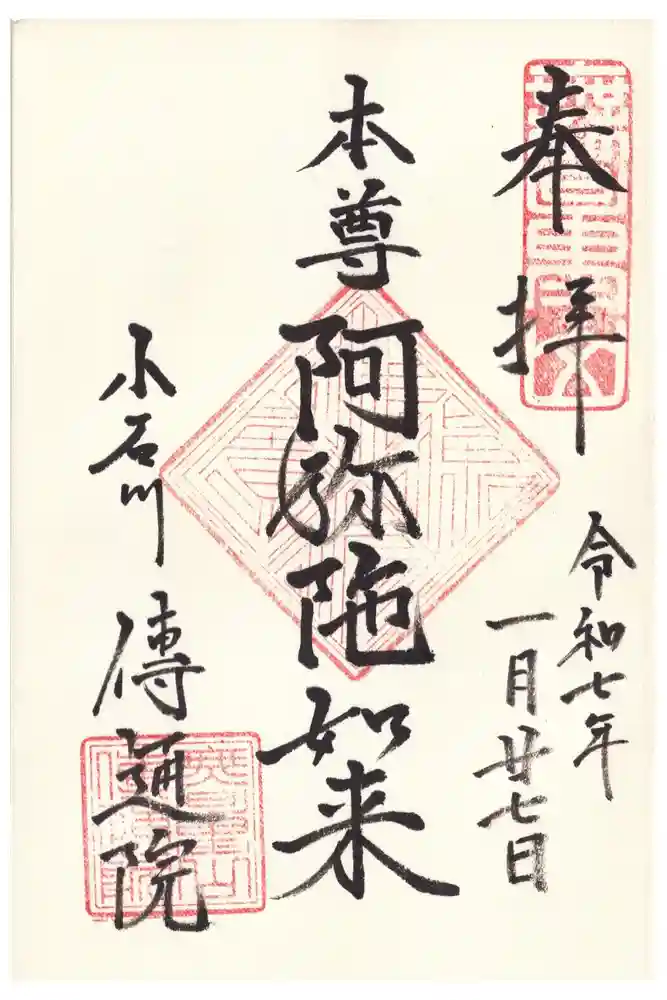 奉拝
令和七年
一月廿七日
本尊阿弥陀如来
小石川
傳通院